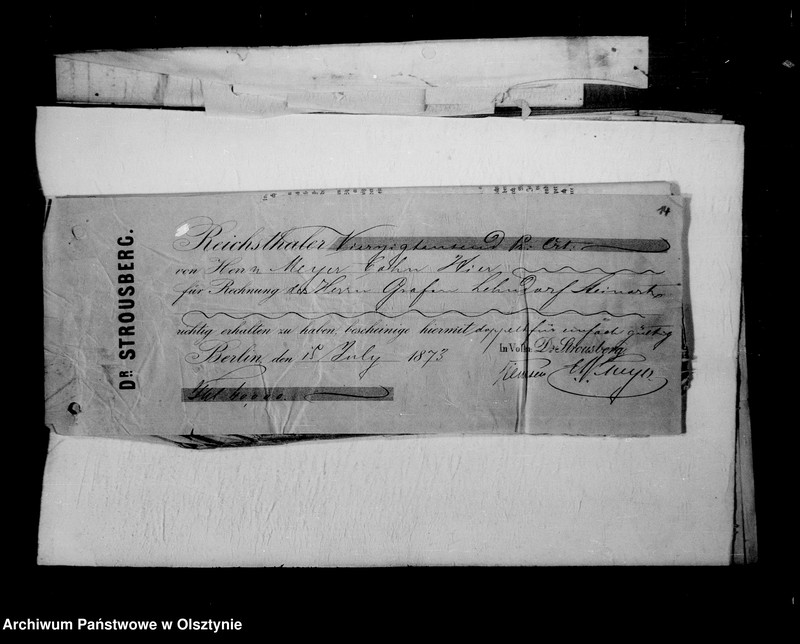 14
DR. STROUSBERG.
Reichsthaler Vierzigtausend Pr. Crt.
von Herrn Meyer Cohn Hier
für Rechnung des Herrn Grafen Lehndorf Steinort
richtig erhalten zu haben, bescheinige hiermit doppelt für einfach gültig
Berlin, den 15 July 1873
In Vollm. Dr. Strousberg
Meyer
40,000.
Archiwum Państwowe w Olsztynie